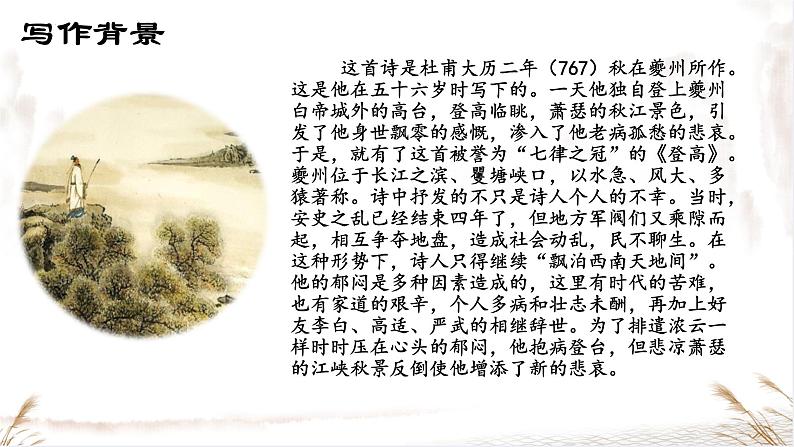 写作背景
这首诗是杜甫大历二年（767）秋在夔州所作。
这是他在五十六岁时写下的。一天他独自登上夔州
白帝城外的高台，登高临眺，萧瑟的秋江景色，引
发了他身世飘零的感慨，渗入了他老病孤愁的悲哀。
于是，就有了这首被誉为“七律之冠”的《登高》。
夔州位于长江之滨、瞿塘峡口，以水急、风大、多
猿著称。诗中抒发的不只是诗人个人的不幸。当时，
安史之乱已经结束四年了，但地方军阀们又乘隙而
起，相互争夺地盘，造成社会动乱，民不聊生。在
这种形势下，诗人只得继续“飘泊西南天地间”。
他的郁闷是多种因素造成的，这里有时代的苦难，
也有家道的艰辛，个人多病和壮志未酬，再加上好
友李白、高适、严武的相继辞世。为了排遣浓云一
样时时压在心头的郁闷，他抱病登台，但悲凉萧瑟
的江峡秋景反倒使他增添了新的悲哀。